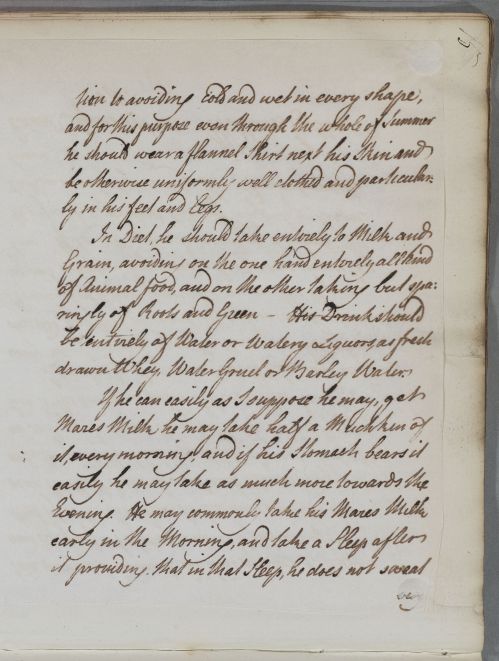 tion to avoiding cold and wet in every shape,
and for this purpose even through the whole of Summer
he should wear a flannel Shirt next his Skin and
be otherwise uniformly well clothed and particular-
ly in his feet and Legs.
In Diet, he should take entirely to Milk and
Grain, avoiding on the one hand entirely all kind
of Animal food, and on the other taking but spa:
ringly of Roots and Green – His Drink should
be entirely of Water or Watery Liquors as fresh
drawn Whey, Water Gruel or Barley Water.
If he can easily as I suppose he may, get
Mares Milk he may take half a Mutchkin of
it, every morning and if his Stomach bears it
easily he may take as much more towards the
Evening. He may commonly take his Mares Milk
early in the Morning, and take a Sleep after
it providing that in that Sleep, he does not sweat
very